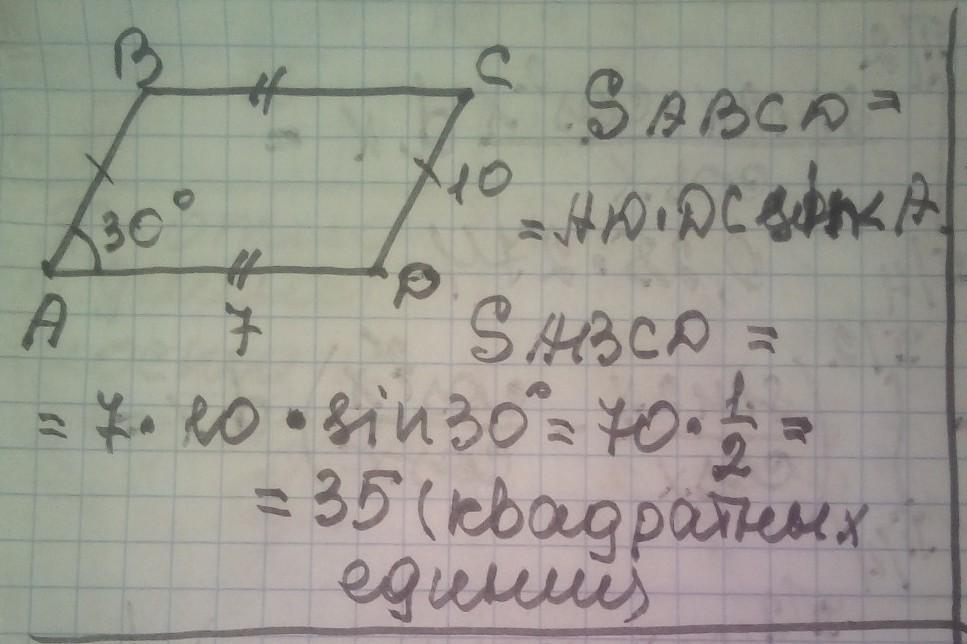 B
C
10
30°
A
7
D
S ABCD =
= AD · DC sin A
S ABCD =
= 7 · 10 · sin 30° = 70 · 1/2 =
= 35 (квадратных
единиц)